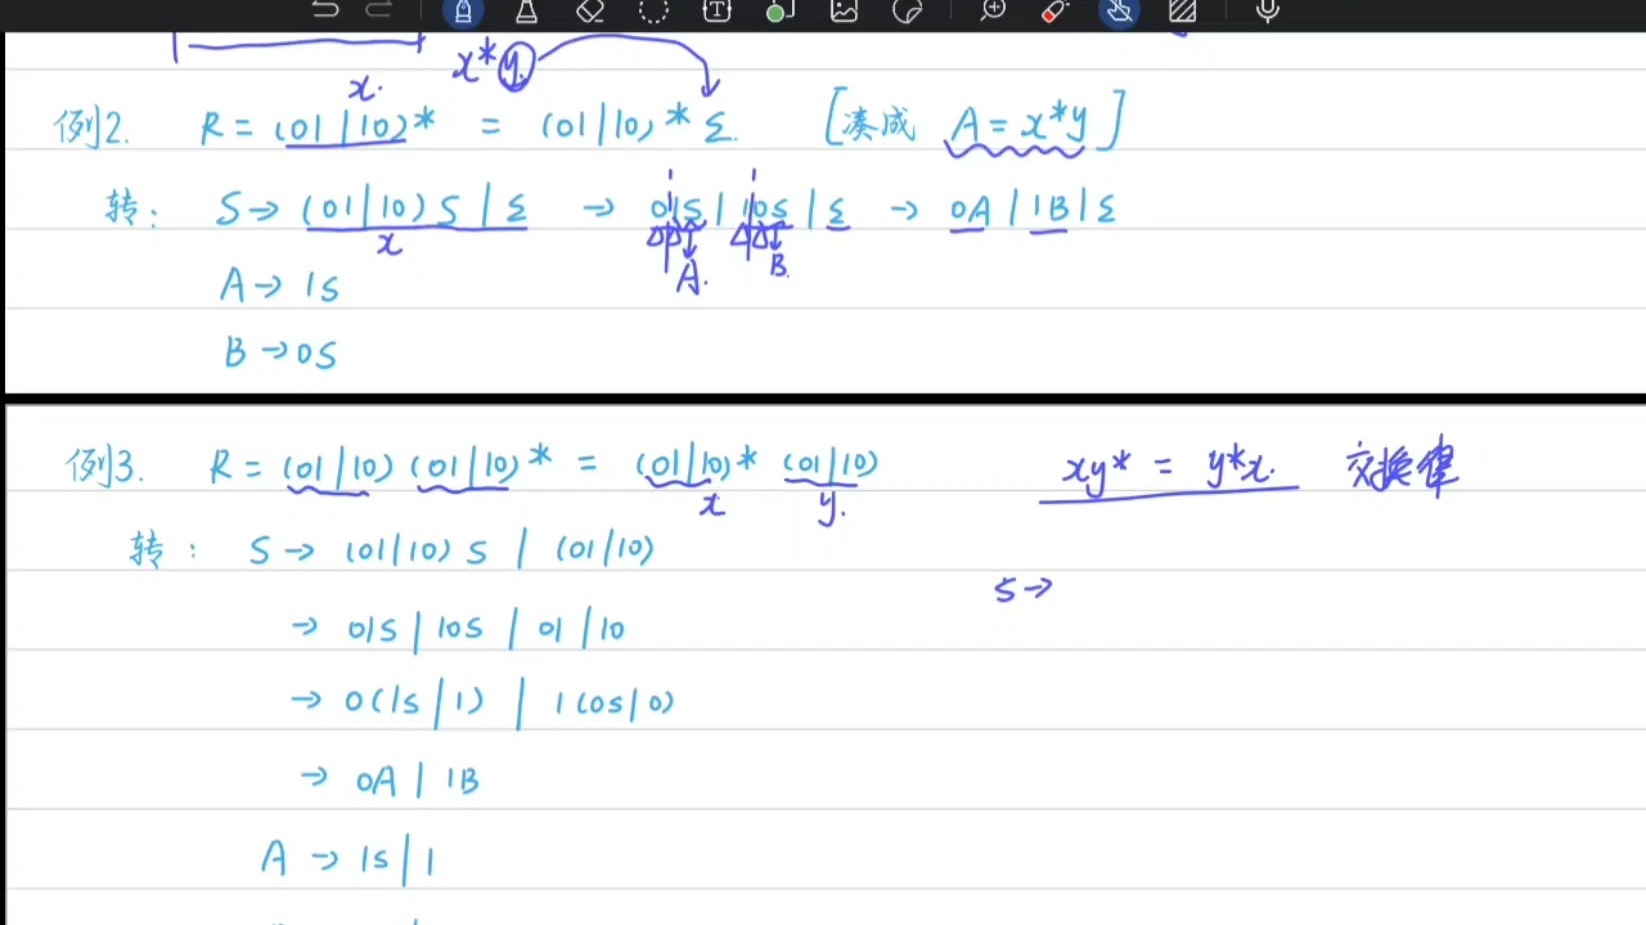 x* y.
x.
例2. R = (01|10)* = (01|10)* Σ. [凑成 A = x*y]
转: S → (01|10) S | Σ → 01S | 10S | Σ → 0A | 1B | Σ
x
A.
B.
A → 1S
B → 0S
例3. R = (01|10) (01|10)* = (01|10)* (01|10) xy* = y*x. 交换律
x y.
转: S → (01|10) S | (01|10)
S →
→ 01S | 10S | 01 | 10
→ 0(1S|1) | 1(0S|0)
→ 0A | 1B
A → 1S | 1